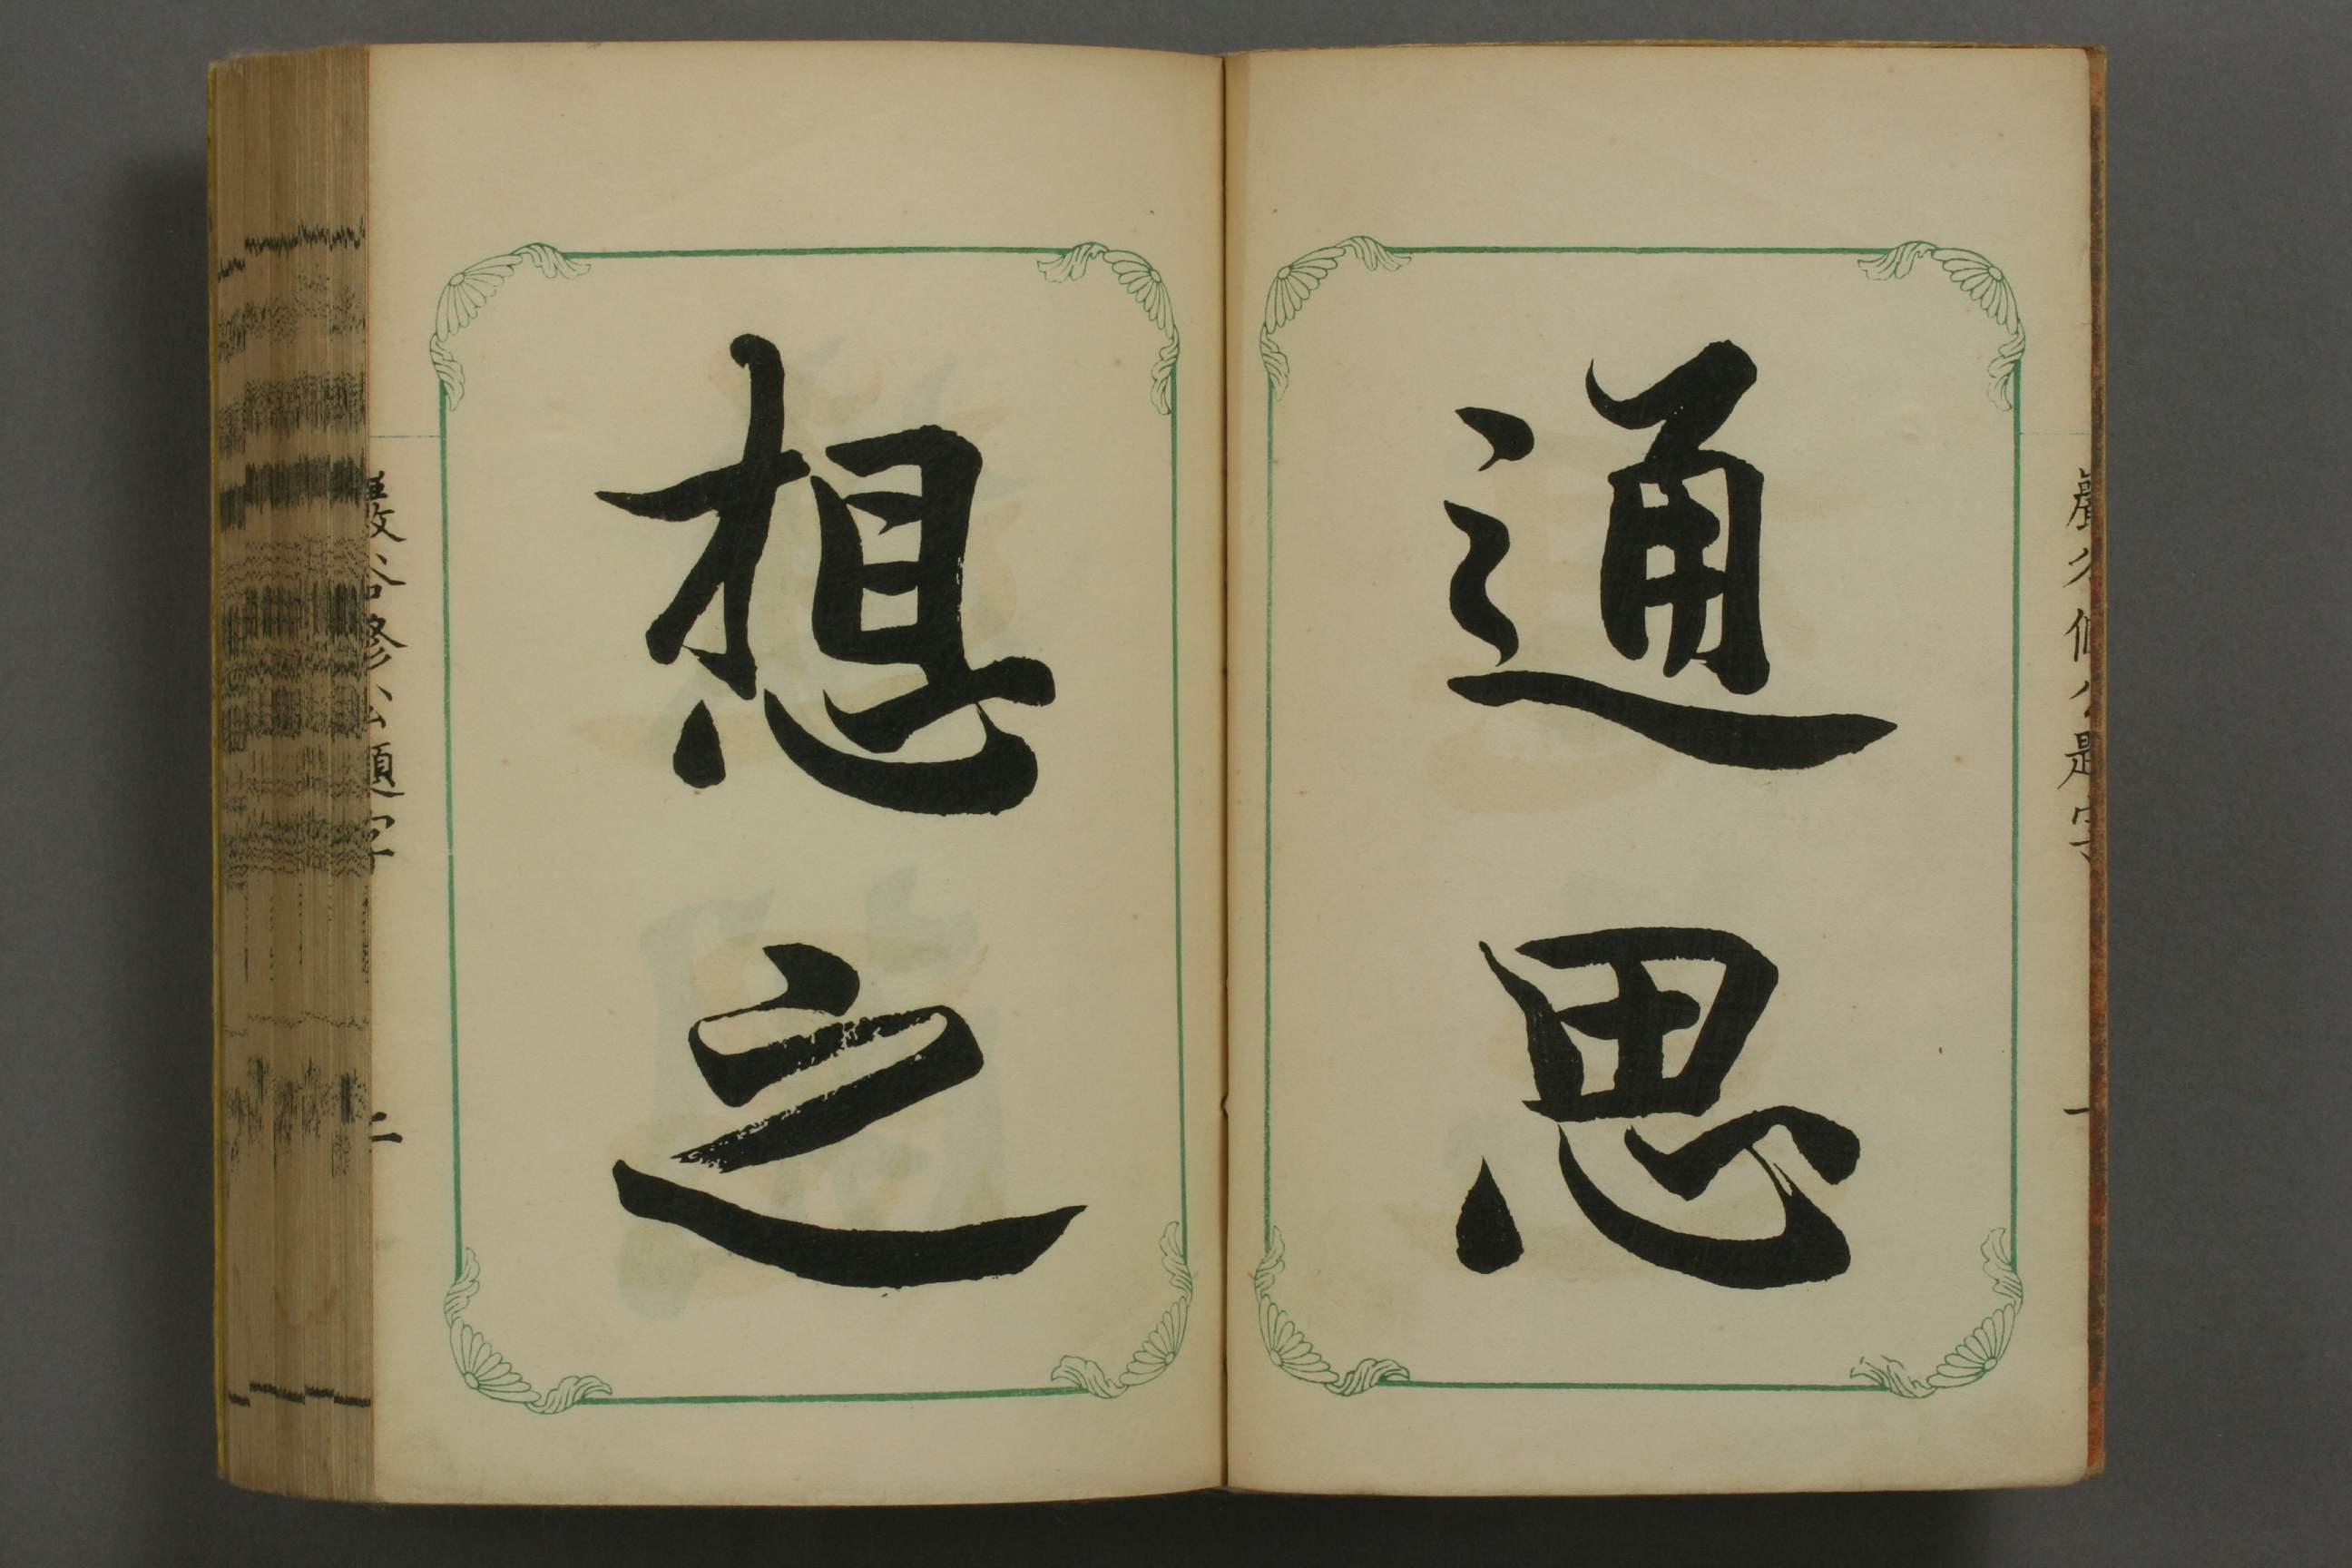 巖谷修公題字 一
通思
想之
巖谷修公題字 二